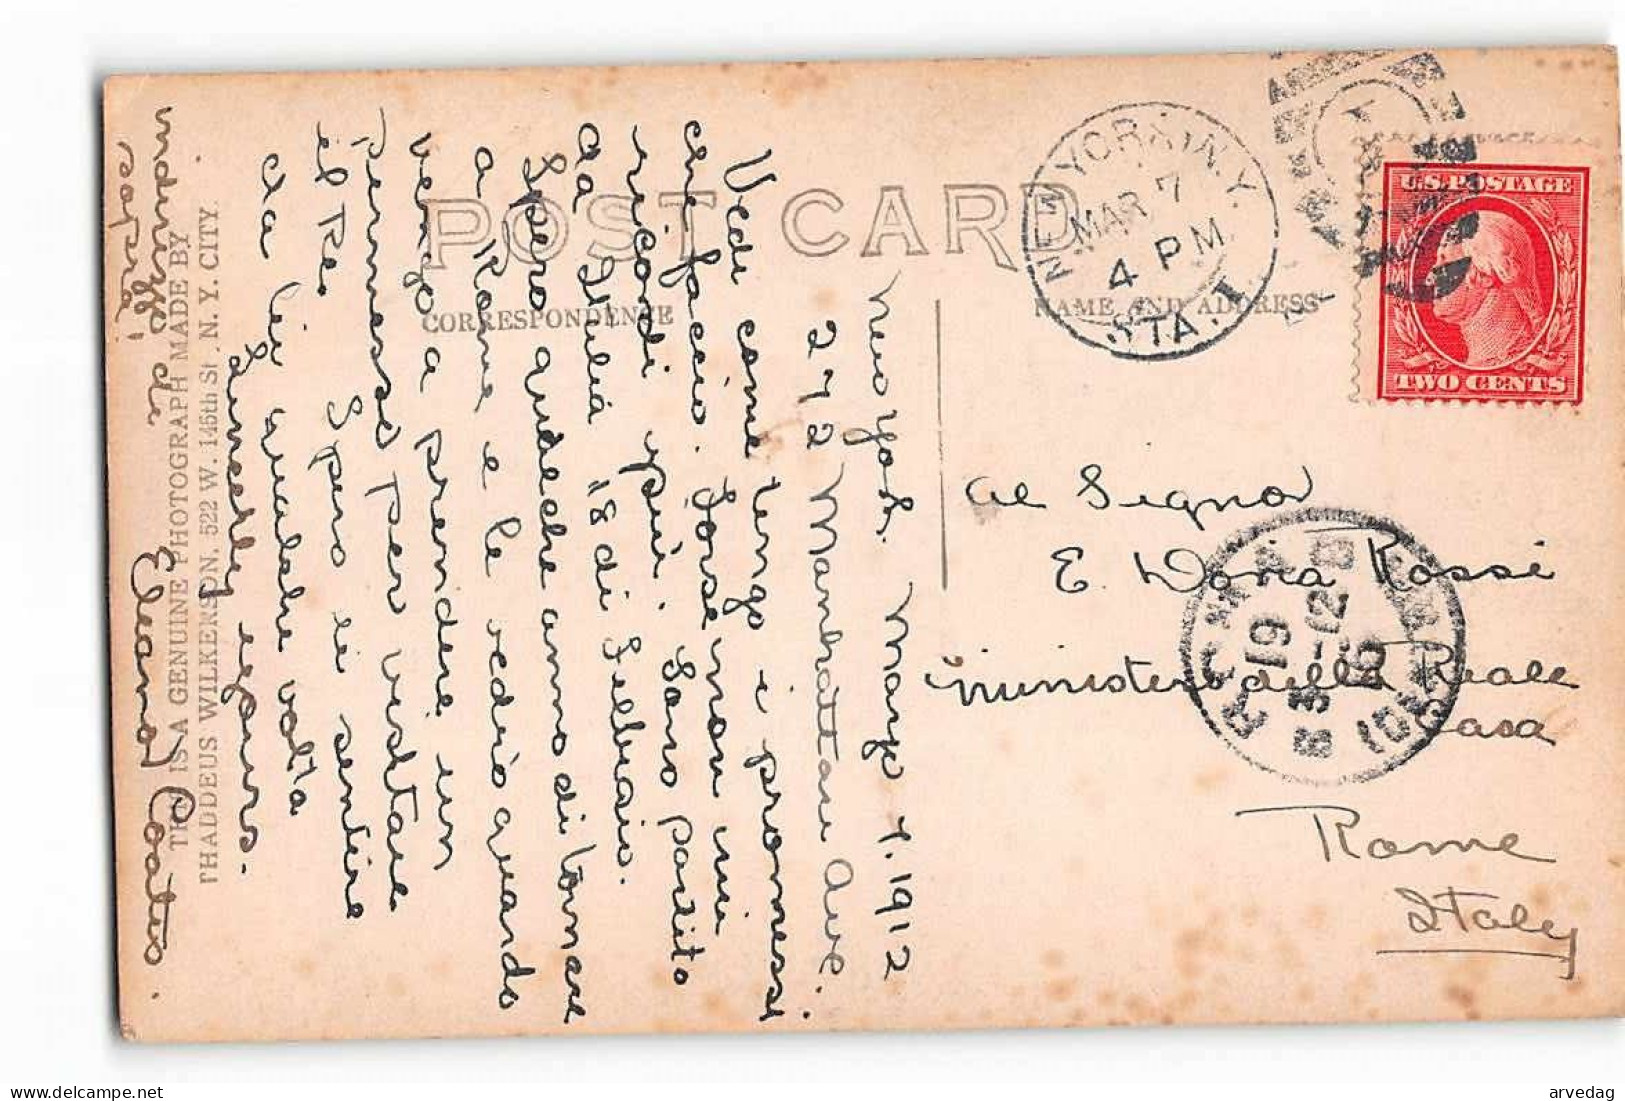 POST CARD
CORRESPONDENCE
NAME AND ADDRESS
THIS IS A GENUINE PHOTOGRAPH MADE BY
THADDEUS WILKERSON. 522 W. 145th St. N. Y. CITY.
NEW YORK, N.Y.
MAR 7
4 PM
STA. I
U.S. POSTAGE
TWO CENTS
New York. March 7. 1912
272 Manhattan Ave.
Vedi come tengo i promesse
che faccio. Forse non mi
ricordi più. Sono partito
da Italia 18 di Febraio.
Spero qualche anno di tornare
a Rome e le vedrò quando
vengo a prendere un
permesso per visitare
il Re. Spero di sentire
da lei qualche volta
Sincerely yours.
Eleanor
indirizzo di
sopra;
Al Signor
E. Doria Rossi
Ministero della Reale
Casa
Rome
Italy
ROMA
19
3-12
arvedag
delcampe.net